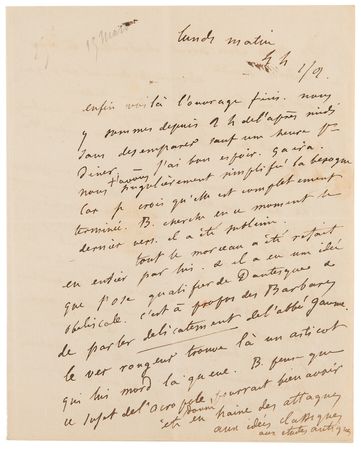 15 Mars
lundi matin
4 h 1/2.
enfin voilà l'ouvrage fini. nous
y sommes depuis 2 h de l'après midi
sans desemparer sauf une heure pr
diner. J'ai bon espoir. ça ira.
nous avons singulièrement simplifié la besogne
Car je crois qu'elle est complètement
terminée. B. cherche en ce moment le
dernier vers. il a été sublime.
tout le morceau a été refait
en entier par lui. & il a eu une idée
que j'ose qualifier de Dantesque &
obéliscale. c'est à propos des Barbares
de parler délicatement de l'abbé Gaume.
le ver rongeur trouve là un asticot
qui lui mord la queue. B. pense que
ce sujet de l'acropole pourrait bien avoir
été donné en haine des attaques
aux idées classiques
aux études antiques